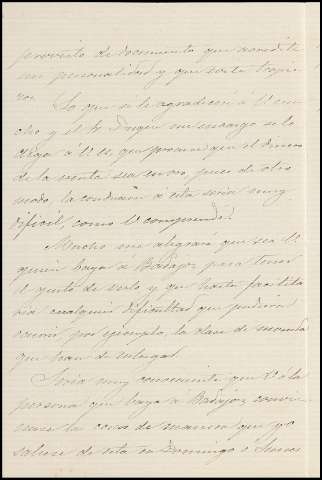 provisto de documento que acredite
su personalidad y que no se tropie
ce.
Lo que se le agradecerá á V. mu
cho y el Sr. Duque me encarga se lo
diga á V. es, que procure que el dinero
de la venta sea en oro, pues de otro
modo, la conducción á esta sería muy
difícil, como V. comprenderá.
Mucho me alegrará que sea V.
quien vaya á Badajoz para tener
el gusto de verlo y que hasta facilita
ría cualquier dificultad que pudiera
ocurrir, por ejemplo, la clase de moneda
que han de entregar.
Sería muy conveniente que V. ó la
persona que vaya á Badajoz convi
niese la cosa de manera que yo
saliese de esta en Domingo ó Lunes